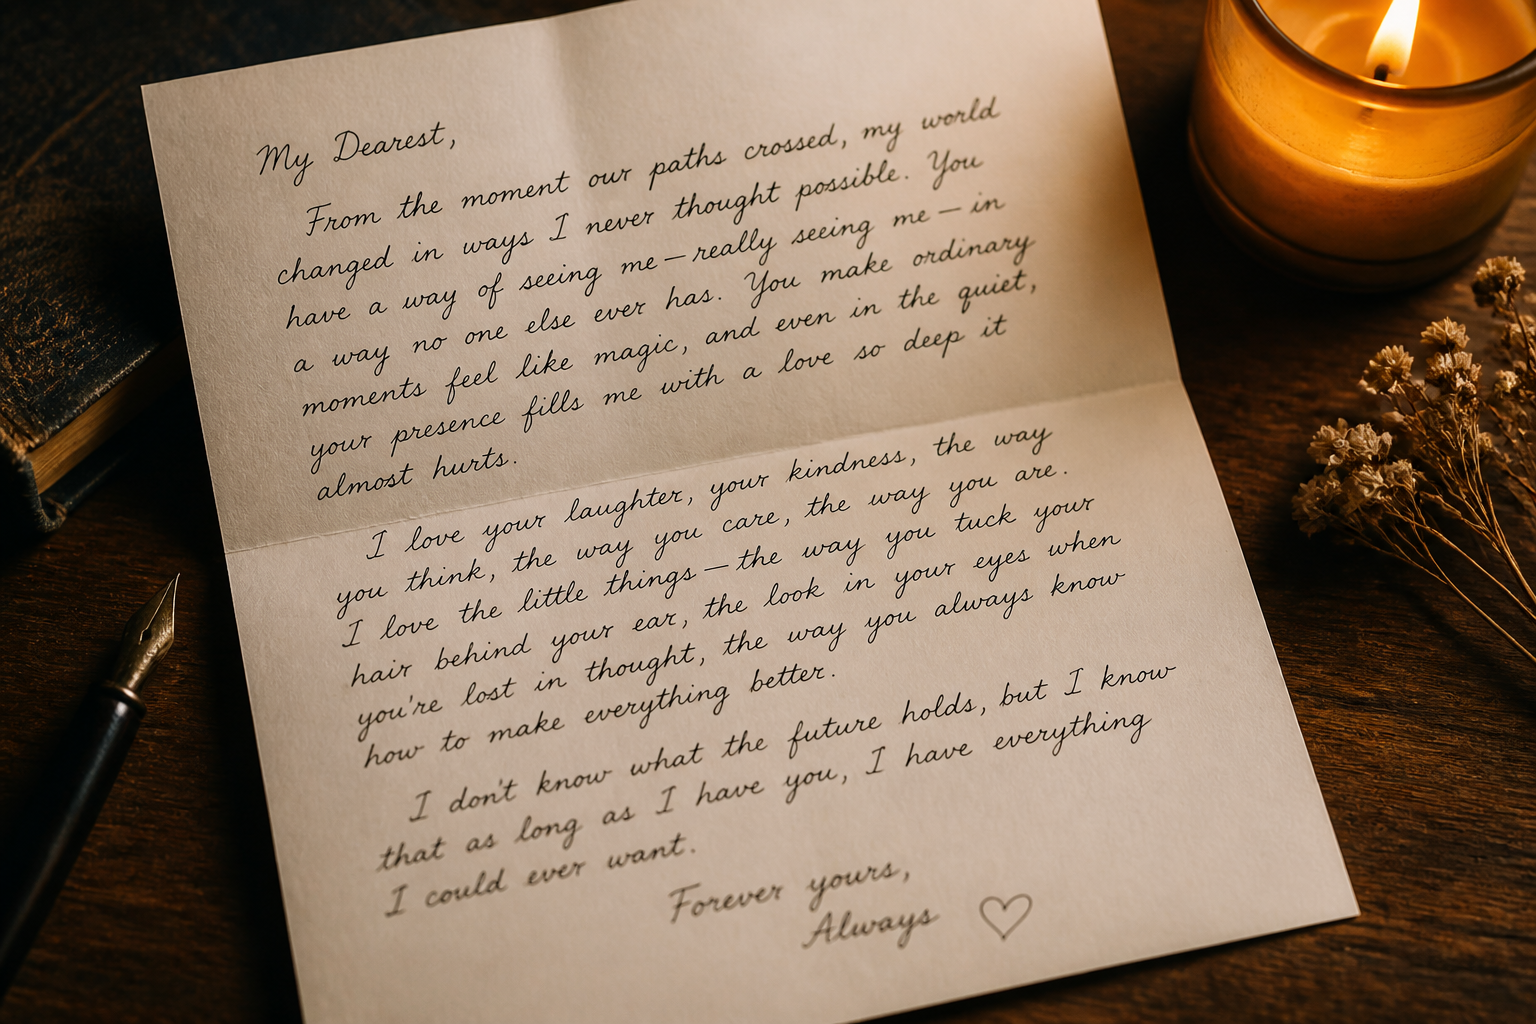 My Dearest,
From the moment our paths crossed, my world
changed in ways I never thought possible. You
have a way of seeing me—really seeing me—in
a way no one else ever has. You make ordinary
moments feel like magic, and even in the quiet,
your presence fills me with a love so deep it
almost hurts.
I love your laughter, your kindness, the way
you think, the way you care, the way you are.
I love the little things—the way you tuck your
hair behind your ear, the look in your eyes when
you're lost in thought, the way you always know
how to make everything better.
I don't know what the future holds, but I know
that as long as I have you, I have everything
I could ever want.
Forever yours,
Always